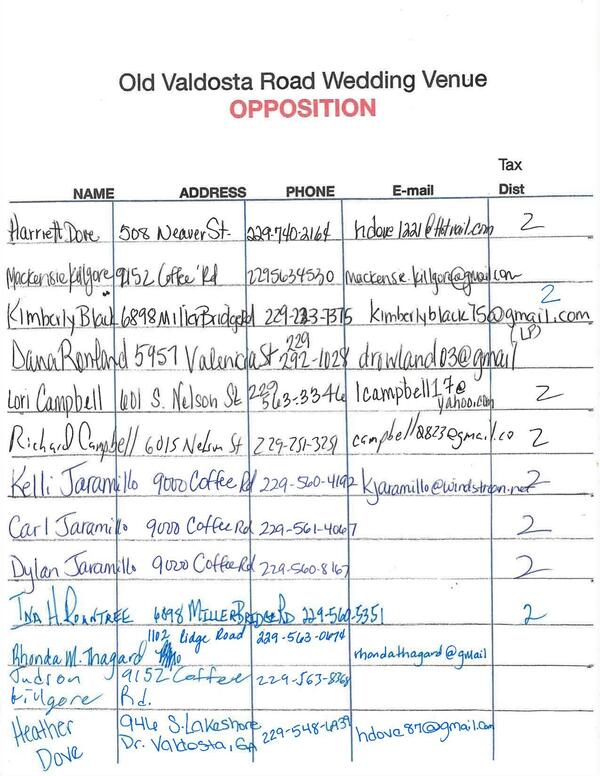 Old Valdosta Road Wedding Venue
OPPOSITION
Tax
NAME ADDRESS PHONE E-mail Dist
Harriett Dove 508 Weaver St. 229-740-2164 hdove1221@hotmail.com 2
Mackensie Killgore 9152 Coffee Rd 2295634530 mackensie.killgore@gmail.com
2
Kimberly Black 6898 Miller Bridge Rd 229-223-7375 kimberlyblack75@gmail.com
(LP)
229
Dana 5957 Valencia St 292-1028 drowland03@gmail
Lori Campbell 601 S. Nelson St 229 563-3346 lcampbell17@
yahoo.com 2
Richard Campbell 601 S Nelson St 229-251-3251 campbell2823@gmail.co 2
Kelli Jaramillo 9000 Coffee Rd 229-560-4192 kjaramillo@windstream.net 2
Carl Jaramillo 9000 Coffee Rd 229-561-4067 2
Dylan Jaramillo 9020 Coffee Rd 229-560-8167 2
Ina H. Rowntree 6898 Miller Bridge Rd 229-560-5351 2
1102 Ridge Road 229-563-0674
Rhonda M. Thagard rhondathagard@gmail
Judson 9152 Coffee 229-563-8368
Killgore Rd.
Heather 946 S. Lakeshore 229-548-6939 hdove87@gmail.com
Dove Dr. Valdosta, GA